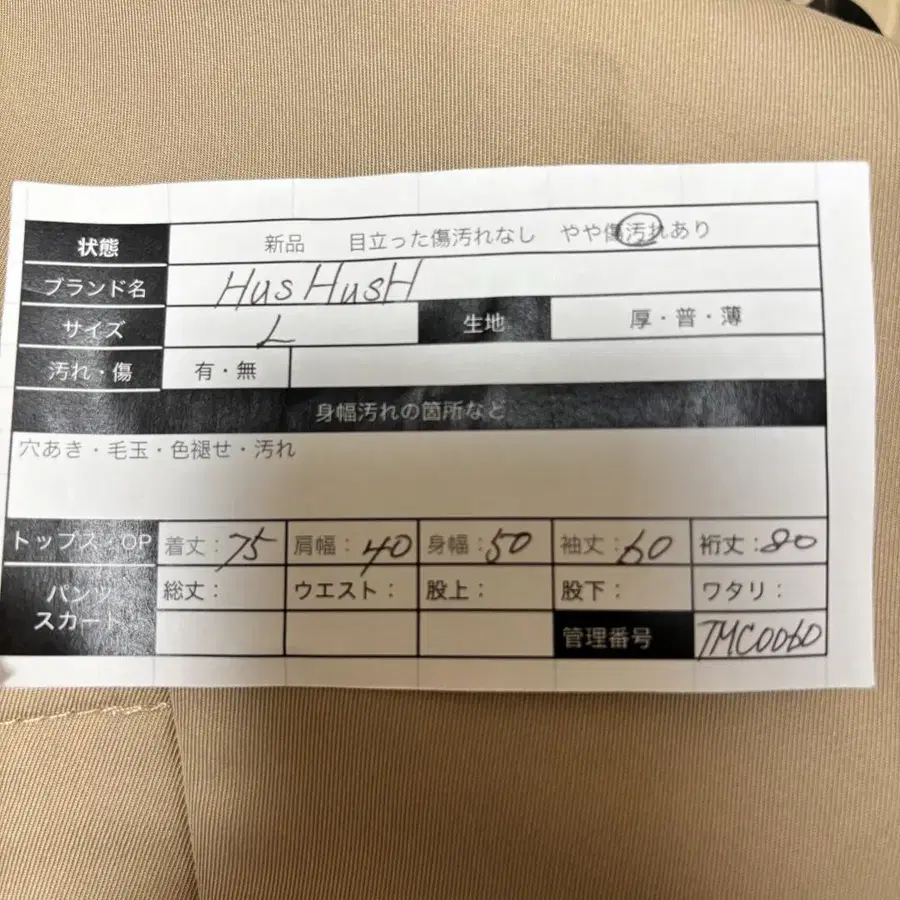 状態 新品 目立った傷汚れなし やや傷汚れあり
ブランド名 HusHusH
サイズ L 生地 厚・普・薄
汚れ・傷 有・無
身幅汚れの箇所など
穴あき・毛玉・色褪せ・汚れ
トップス・OP 着丈:75 肩幅:40 身幅:50 袖丈:60 裄丈:80
パンツ 総丈: ウエスト: 股上: 股下: ワタリ:
スカート 管理番号 TMC0060